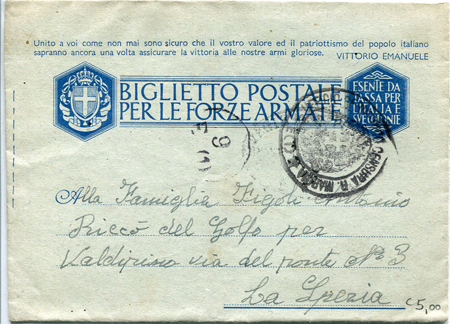 Unito a voi come non mai sono sicuro che il vostro valore ed il patriottismo del popolo italiano
sapranno ancora una volta assicurare la vittoria alle nostre armi gloriose.
VITTORIO EMANUELE
BIGLIETTO POSTALE
PER LE FORZE ARMATE
ESENTE DA
TASSA PER
L'ITALIA E
SVE COLONIE
CENSURA R. MARINA
Alla Famiglia Figoli Antonio
Riccò del Golfo per
Valdipino via del ponte N° 3
La Spezia
€5,00